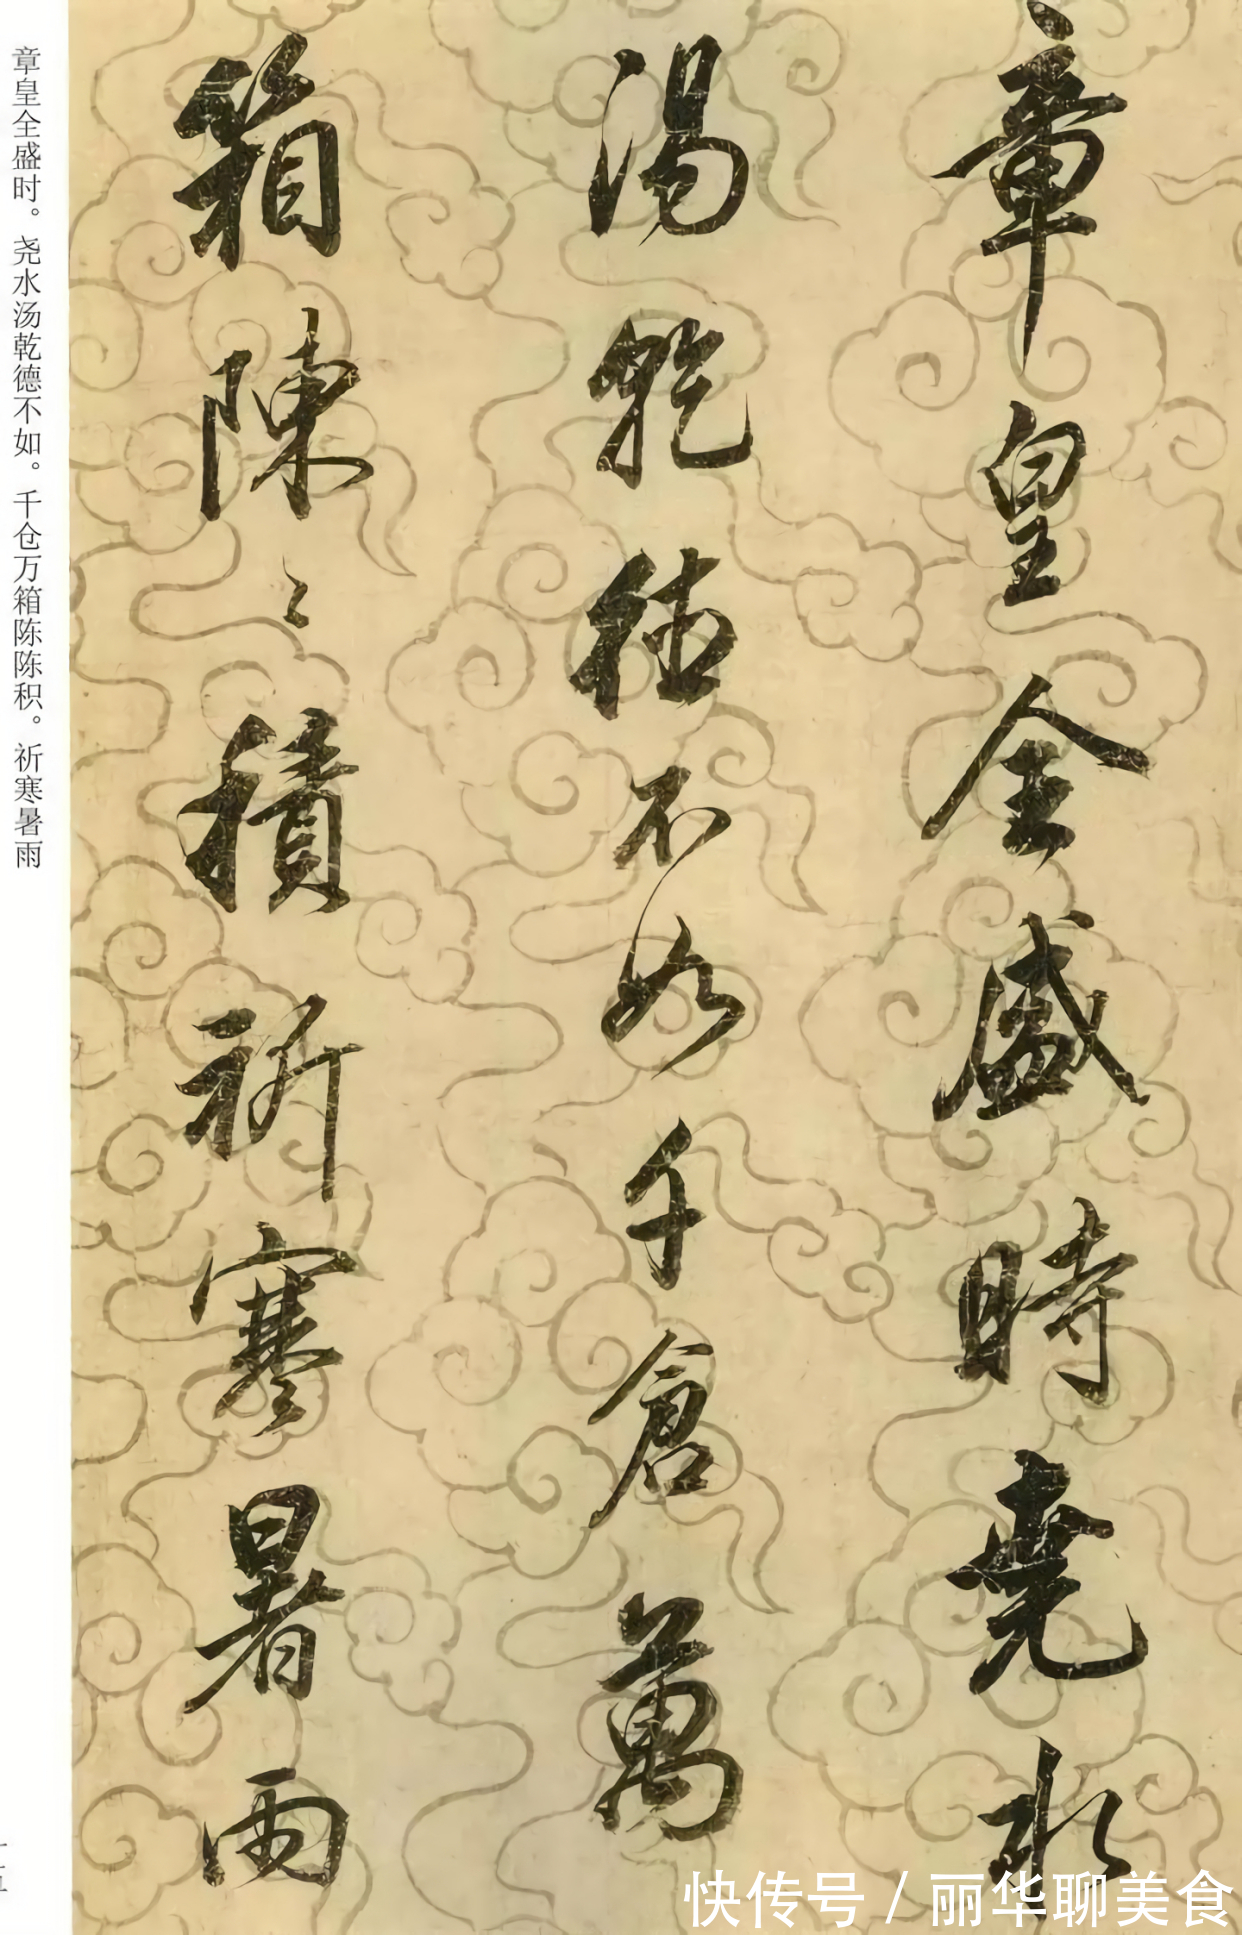 章皇全盛時堯水
湯乾德不如千倉萬
箱陳〻積祈寒暑雨
章皇全盛时。尧水汤乾德不如。千仓万箱陈陈积。祈寒暑雨
快传号 / 丽华聊美食